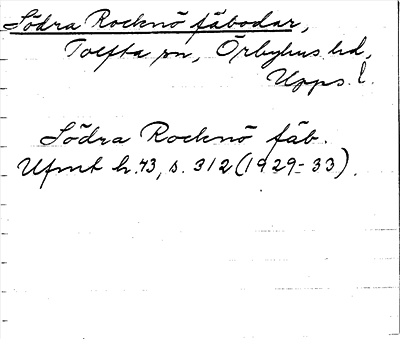 Södra Rocknö fäbodar,
Tolfta sn, Örbyhus hd,
Upps. l.
Södra Rocknö fäb.
Ufmt h. 43, s. 312 (1929-33).